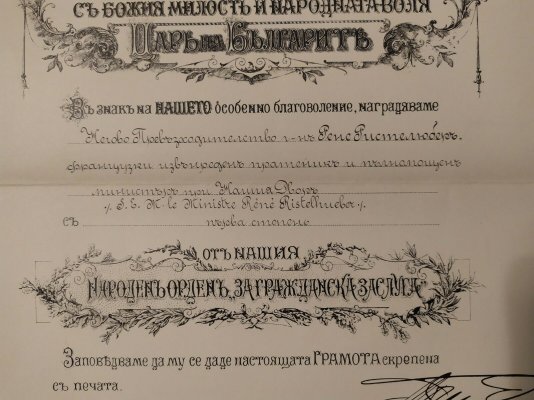 СЪ БОЖИЯ МИЛОСТЬ И НАРОДНАТА ВОЛЯ
ЦАРЬ НА БЪЛГАРИТѢ
Въ знакъ на НАШЕТО особенно благоволение, награждаваме
Негово Превъзходителство г-нъ Рене Ристелюберъ,
французки извънреденъ пратеникъ и пълномощенъ
министъръ при Нашия Дворъ
/. S. E. M. le Ministre René Ristelhueber /.
съ първа степень
ОТЪ НАШИЯ
НАРОДЕНЪ ОРДЕНЪ „ЗА ГРАЖДАНСКА ЗАСЛУГА“
Заповѣдваме да му се даде настоящата ГРАМОТА скрепена
съ печата.